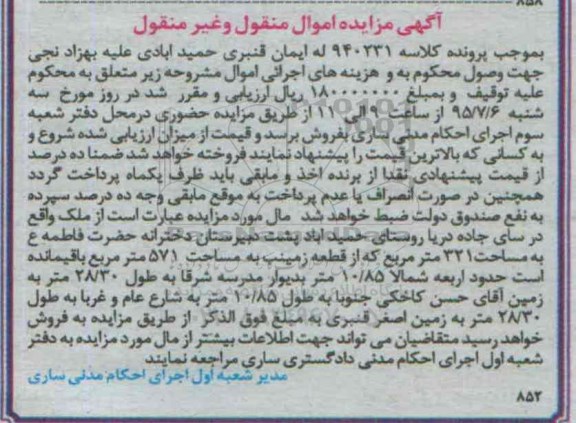 ۸۵۸
آگهی مزایده اموال منقول وغیر منقول
بموجب پرونده کلاسه ۹۴۰۲۳۱ له ایمان قنبری حمید ابادی علیه بهزاد نجی
جهت وصول محکوم به و هزینه های اجرائی اموال مشروحه زیر متعلق به محکوم
علیه توقیف و بمبلغ ۱۸۰۰۰۰۰۰۰۰ ریال ارزیابی و مقرر شد در روز مورخ سه
شنبه ۹۵/۷/۶ از ساعت ۹ الی ۱۱ از طریق مزایده حضوری درمحل دفتر شعبه
سوم اجرای احکام مدنی ساری بفروش برسد و قیمت از میزان ارزیابی شده شروع و
به کسانی که بالاترین قیمت را پیشنهاد نمایند فروخته خواهد شد ضمنا ده درصد
از قیمت پیشنهادی نقدا از برنده اخذ و مابقی باید ظرف یکماه پرداخت گردد
همچنین در صورت انصراف یا عدم پرداخت به موقع مابقی وجه ده درصد سپرده
به نفع صندوق دولت ضبط خواهد شد مال مورد مزایده عبارت است از ملک واقع
در سای جاده دریا روستای حمید اباد پشت دبیرستان دخترانه حضرت فاطمه ع
به مساحت ۳۲۱ متر مربع که از قطعه زمینب به مساحت ۵۷۱ متر مربع باقیمانده
است حدود اربعه شمالا ۱۰/۸۵ متر بدیوار مدرسه شرقا به طول ۲۸/۳۰ متر به
زمین آقای حسن کاخکی جنوبا به طول ۱۰/۸۵ متر به شارع عام و غربا به طول
۲۸/۳۰ متر به زمین اصغر قنبری به مبلغ فوق الذکر از طریق مزایده به فروش
خواهد رسید متقاضیان می تواند جهت اطلاعات بیشتر از مال مورد مزایده به دفتر
شعبه اول اجرای احکام مدنی دادگستری ساری مراجعه نمایند
مدیر شعبه اول اجرای احکام مدنی ساری
۸۵۲